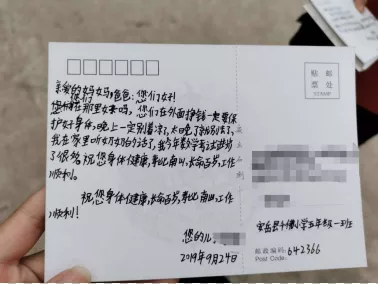 亲爱的妈妈,爸爸:您们好!
您们在那里好吗,您们在外面挣钱一定要保
护好身体,晚上一定别着凉了,太晚了就别
我在家里听奶奶的话了,我今年数学考试进步
了很多,祝您身体健康,寿比南山,长命百岁,工作
顺利。
祝您身体健康,长命百岁,寿比南山,工作
顺利!
您的儿
2019年9月24日
贴 邮
票 处
STAMP
安岳县千佛小学五年级一班
邮政编码:642366
Post Code: